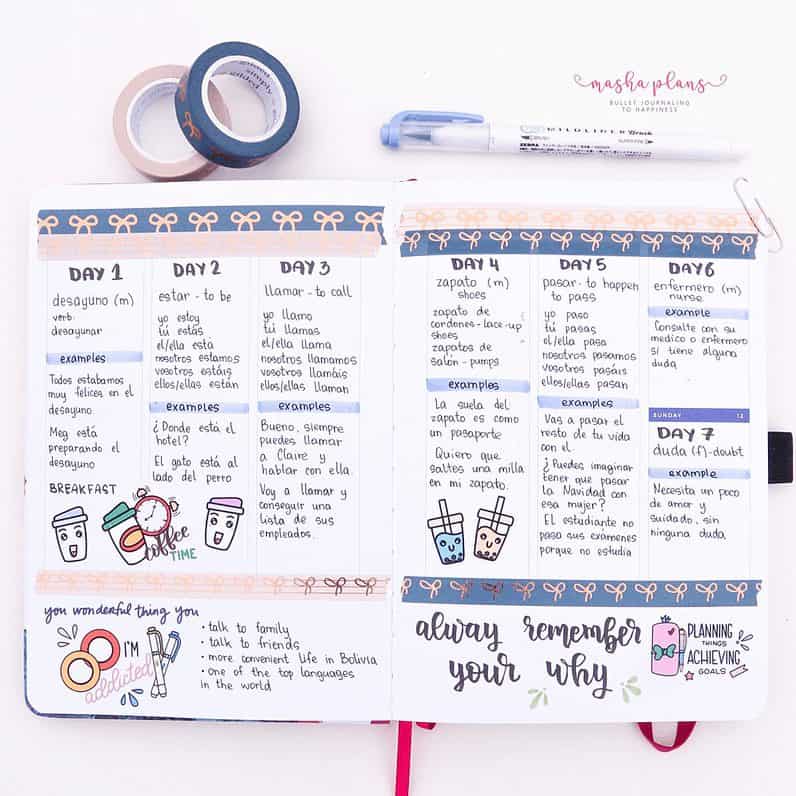 simply
gilded
masha plans
BULLET JOURNALING
TO HAPPINESS
MILDLINER Brush
ZEBRA
DAY 1
desayuno (m)
verb:
desayunar
examples
Todos estabamos
muy felices en el
desayuno
Meg está
preparando el
desayuno
BREAKFAST
coffee
TIME
DAY 2
estar - to be
yo estoy
tú estás
el/ella está
nosotros estamos
vosotros estáis
ellos/ellas están
examples
¿Donde está el
hotel?
El gato está al
lado del perro
DAY 3
llamar - to call
yo llamo
tú llamas
el/ella llama
nosotros llamamos
vosotros llamáis
ellos/ellas llaman
examples
Bueno, siempre
puedes llamar
a Claire y
hablar con ella.
Voy a llamar y
conseguir una
lista de sus
empleados.
you wonderful thing you
I'M
addicted
• talk to family
• talk to friends
• more convenient life in Bolivia
• one of the top languages
in the world
DAY 4
zapato (m)
shoes
zapato de
cordones - lace-up
shoes
zapatos de
salón - pumps
examples
La suela del
zapato es como
un pasaporte
Quiero que
saltes una milla
en mi zapato.
DAY 5
pasar - to happen
to pass
yo paso
tú pasas
el/ella pasa
nosotros pasamos
vosotros pasáis
ellos/ellas pasan
examples
Vas a pasar el
resto de tu vida
con el.
¿Puedes imaginar
tener que pasar
la Navidad con
esa mujer?
El estudiante no
pasa sus exámenes
porque no estudia
DAY 6
enfermero (m)
nurse
example
Consulte con su
medico o enfermero
si tiene alguna
duda
SUNDAY 12
DAY 7
duda (f) - doubt
example
Necesita un poco
de amor y
suidado, sin
ninguna duda
alway remember
your why
PLANNING
THINGS
ACHIEVING
GOALS